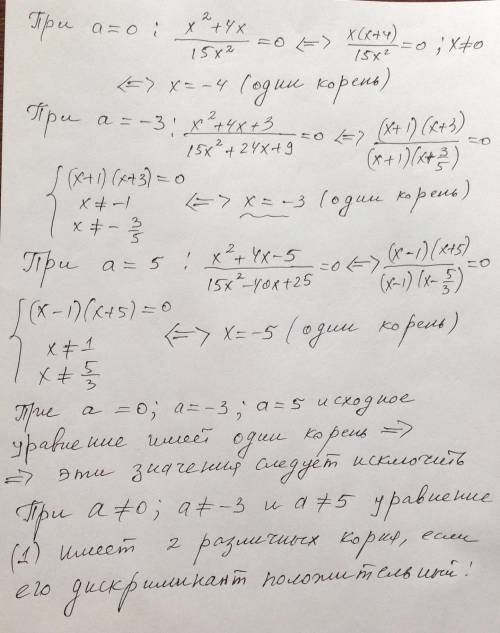 При a=0 : (x²+4x)/(15x²) = 0 <=> (x(x+4))/(15x²) = 0 ; x≠0
<=> x = -4 (один корень)
При a = -3 : (x²+4x+3)/(15x²+24x+9) = 0 <=> ((x+1)(x+3))/((x+1)(x+3/5)) = 0
{ (x+1)(x+3) = 0
x ≠ -1 <=> x = -3 (один корень)
x ≠ -3/5
При a = 5 : (x²+4x-5)/(15x²-40x+25) = 0 <=> ((x-1)(x+5))/((x-1)(x-5/3)) = 0
{ (x-1)(x+5) = 0
x ≠ 1 <=> x = -5 (один корень)
x ≠ 5/3
При a = 0; a = -3; a = 5 исходное
уравнение имеет один корень =>
=> эти значения следует исключить
При a ≠ 0; a ≠ -3 и a ≠ 5 уравнение
(1) имеет 2 различных корня, если
его дискриминант положительный!